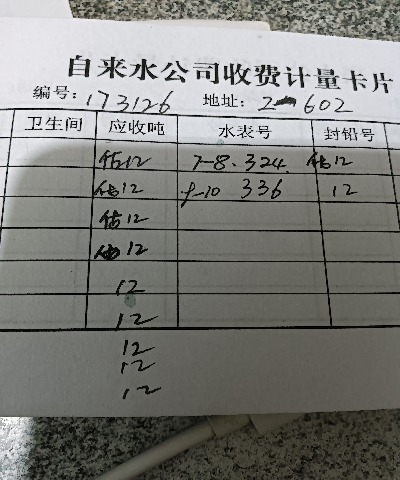 自来水公司收费计量卡片
编号: 173126 地址: 2-602
卫生间 应收吨 水表号 封铅号
估12 7-8. 324. 估12
估12 9-10 336 12
估12
估12
12
12
12
12
12